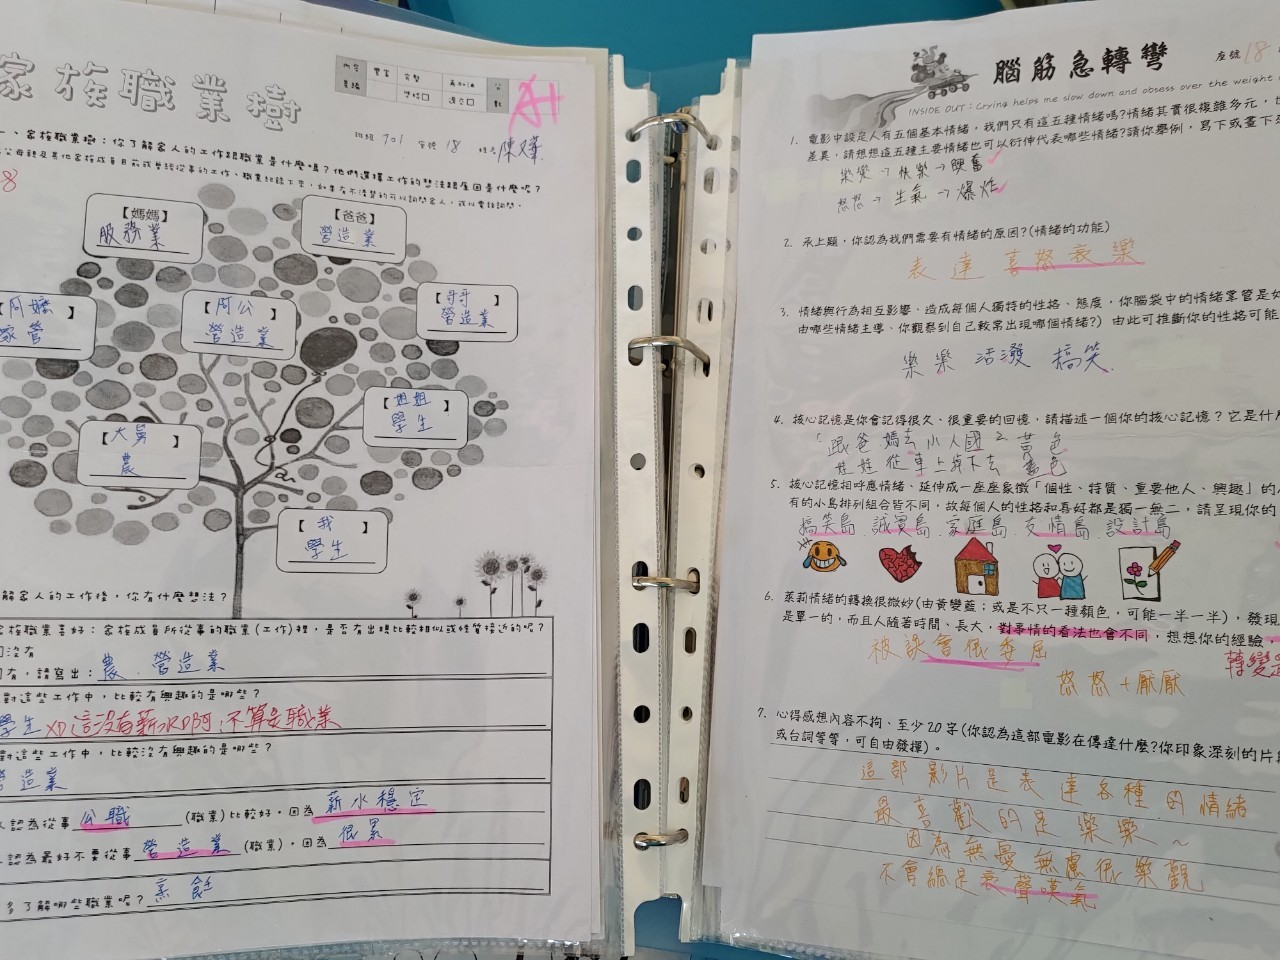 家族職業樹
內容 豐富 完整
再加油 公
意涵 學怪口 適合口 數
A+
班級 701 座號 18 姓名 陳
一、家族職業樹：你了解家人的工作跟職業是什麼嗎？他們選擇工作的想法跟原因是什麼呢？
【媽媽】
服務業
【爸爸】
營造業
阿嬤
家管
【阿公】
營造業
【哥哥】
營造業
【姐姐】
學生
【大舅】
農
【我】
學生
解家人的工作後，你有什麼想法？
家族職業喜好：家族成員所從事的職業(工作)裡，是否有出現比較相似或性質接近的呢？
沒有
有，請寫出：農、營造業
對這些工作中，比較有興趣的是哪些？
學生 XD這沒有薪水的啊，不算是職業
對這些工作中，比較沒有興趣的是哪些？
營造業
認為從事 公職 (職業)比較好，因為 薪水穩定
認為最好不要從事 營造業 (職業)，因為 很累
多了解哪些職業呢？烹飪
腦筋急轉彎
座號 18
INSIDE OUT：Crying helps me slow down and obsess over the weight
1. 電影中設定人有五個基本情緒，我們只有這五種情緒嗎？情緒其實很複雜多元，
差異，請想想這五種主要情緒也可以衍伸代表哪些情緒？請你舉例，寫下或畫下
樂樂→快樂→興奮
怒怒→生氣→爆炸
2. 承上題，你認為我們需要有情緒的原因？(情緒的功能)
表達喜怒哀樂
3. 情緒與行為相互影響，造成每個人獨特的性格、態度，你腦袋中的情緒掌管是
由哪些情緒主導、你觀察到自己較常出現哪個情緒？) 由此可推斷你的性格可能
樂樂 活潑 搞笑
4. 核心記憶是你會記得很久、很重要的回憶，請描述一個你的核心記憶？它是什
跟爸媽去小人國 黃色
娃娃從車上掉下去 藍色
5. 核心記憶相呼應情緒、延伸成一座座象徵「個性、特質、重要他人、興趣」的
有的小島排列組合皆不同，故每個人的性格和喜好都是獨一無二，請呈現你的
搞笑島、誠實島、家庭島、友情島、設計島
6. 萊莉情緒的轉換很微妙(由黃變藍；或是不只一種顏色，可能一半一半)，發現
是單一的，而且人隨著時間、長大，對事情的看法也會不同，想想你的經驗，
被誤會很委屈
轉變
怒怒+厭厭
7. 心得感想內容不拘、至少20字(你認為這部電影在傳達什麼？你印象深刻的片
或台詞等等，可自由發揮)。
這部影片是表達各種的情緒
最喜歡的是樂樂～
因為無憂無慮很樂觀
不會總是哀聲嘆氣